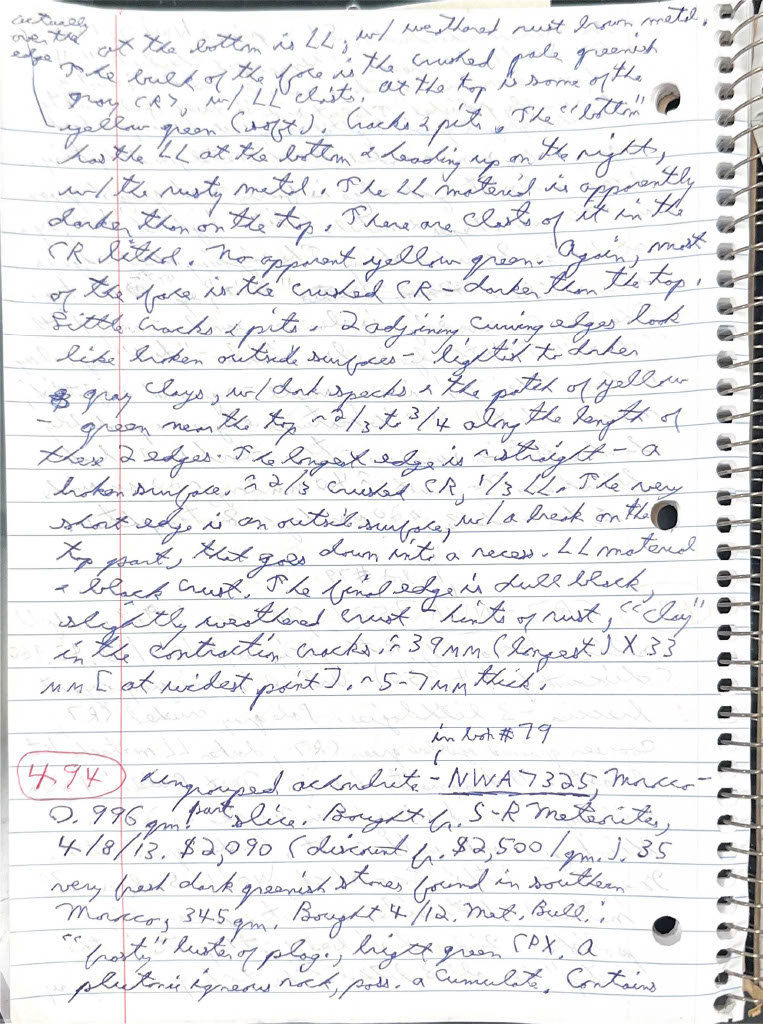 actually
over the
edge
at the bottom is LL, w/ weathered rust brown metal.
The bulk of the face is the crushed pale greenish
gray CR7, w/ LL clasts. At the top is some of the
yellow green (soft). Cracks & pits. The "bottom"
has the LL at the bottom & heading up on the right,
w/ the rusty metal. The LL material is apparently
darker than on the top. There are clasts of it in the
CR lithol. No apparent yellow green. Again, most
of the face is the crushed CR - darker than the top.
Little cracks & pits. 2 adjoining curving edges look
like broken outside surfaces - lightish to darker
gray clays, w/ dark specks & the patch of yellow
- green near the top ~2/3 to 3/4 along the length of
these 2 edges. The longest edge is ~straight - a
broken surface. ~2/3 crushed CR, 1/3 LL. The very
short edge is an outside surface, w/ a break on the
top part, that goes down into a recess. LL material
& black crust. The final edge is dull black,
slightly weathered crust - hints of rust, "clay"
in the contraction cracks. ~39mm (longest) X 33
mm [at widest point]. ~5-7mm thick.
in box #79
494 Ungrouped achondrite - NWA 7325, Morocco -
0.996 gm. part slice. Bought fr. S-R Meteorites,
4/8/13. $2,090 (discount fr. $2,500/gm.). 35
very fresh dark greenish stones found in southern
Morocco, 345 gm. Bought 4/12. Met. Bull.:
"frosty" luster of plag., bright green CPX. A
plutonic igneous rock, poss. a cumulate. Contains